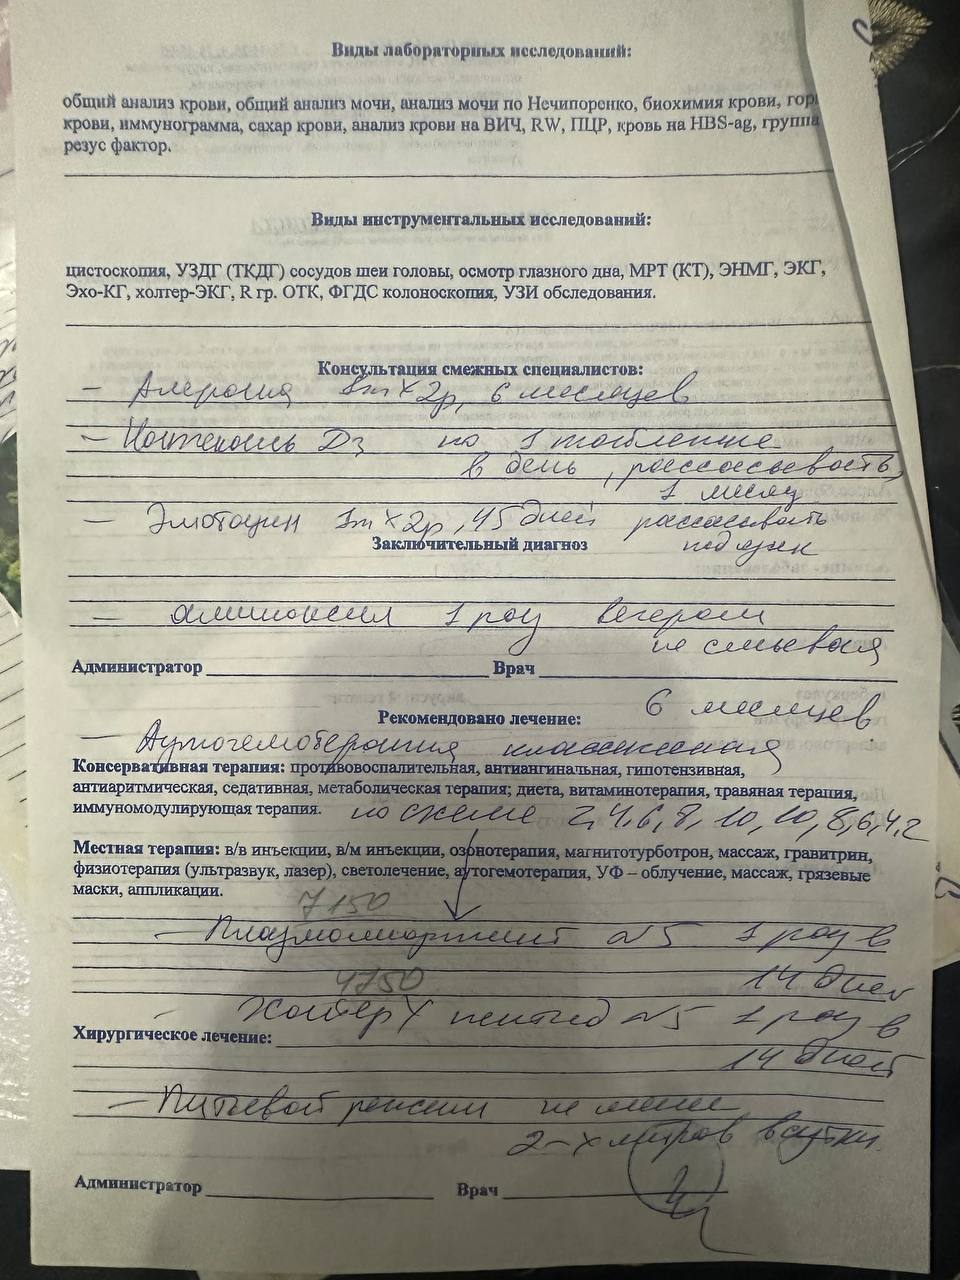 Виды лабораторных исследований:
общий анализ крови, общий анализ мочи, анализ мочи по Нечипоренко, биохимия крови, гор
крови, иммунограмма, сахар крови, анализ крови на ВИЧ, RW, ПЦР, кровь на HBS-ag, группа
резус фактор.
Виды инструментальных исследований:
цистоскопия, УЗДГ (ТКДГ) сосудов шеи головы, осмотр глазного дна, МРТ (КТ), ЭНМГ, ЭКГ,
Эхо-КГ, холтер-ЭКГ, R гр. ОТК, ФГДС колоноскопия, УЗИ обследования.
Консультация смежных специалистов:
- 1т х 2р, 6 месяцев
- Д3 по 1 таблетке
в день, рассасывать,
1 месяц
- 1т х 2р, 45 дней рассасывать
Заключительный диагноз под язык
- 1 раз вечером
не смывая
Администратор Врач
6 месяцев
Рекомендовано лечение:
- Аутогемотерапия классическая
Консервативная терапия: противовоспалительная, антиангинальная, гипотензивная,
антиаритмическая, седативная, метаболическая терапия; диета, витаминотерапия, травяная терапия,
иммуномодулирующая терапия. по схеме 2,4,6,8,10,10,8,6,4,2
Местная терапия: в/в инъекции, в/м инъекции, озонотерапия, магнитотурботрон, массаж, гравитрин,
физиотерапия (ультразвук, лазер), светолечение, аутогемотерапия, УФ – облучение, массаж, грязевые
маски, аппликации.
7150
- N5 1 раз в
14 дней
4750
- пептид N5 1 раз в
Хирургическое лечение:
14 дней
- Питьевой режим не менее
2-х литров в сутки.
Администратор Врач